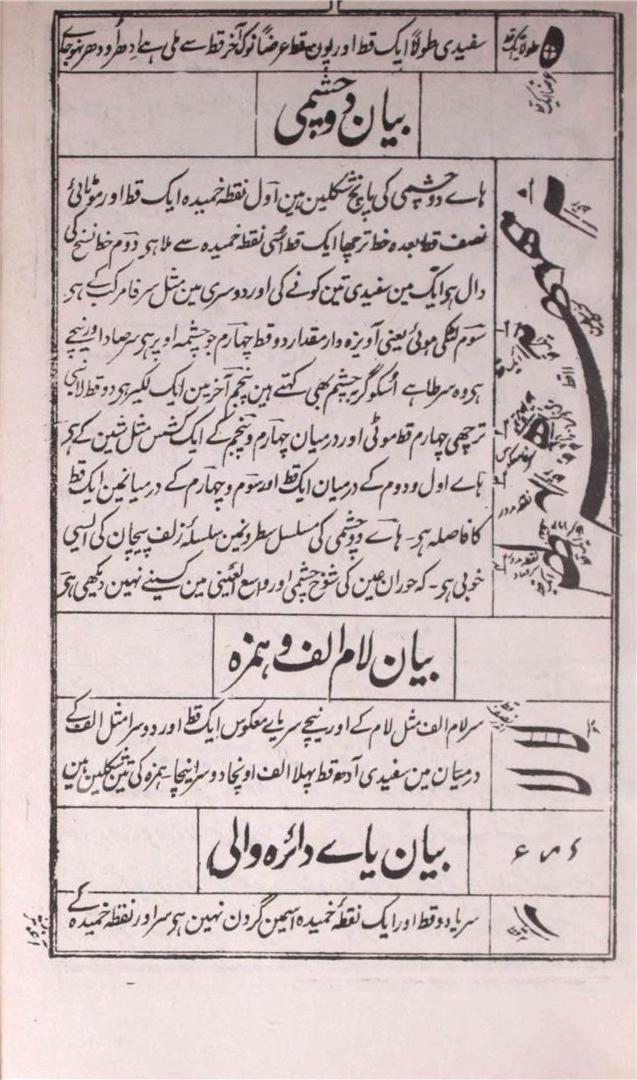 سفیدی طولاً ایک قط اور پون قط عرضاً نوک آخر قط سے ملی ہے ادھر ودھر نہو جاے
طولاً ایک قط
بیان دوچشمی
ہاے دوچشمی کی پانچ شکلین ہین اول نقطہ خمیدہ ایک قط اور موٹائی
نصف قط بعدہ خط ترچھا ایک قط اُسی نقطہ خمیدہ سے ملا ہو دوم خط نسخ کی
دال ہو ایک مین سفیدی تین کونے کی اور دوسری مین مثل سر فا مرکب کے ہو
سوم لٹکی ہوئی یعنی آویزہ وار مقدار دو قط چہارم جو چشمہ اوپر ہو سر صاد اور نیچے
ہو وہ سر طا ہے اُسکو گربہ چشم بھی کہتے ہین پنجم آخر مین ایک لکیر ہو دو قط لانبی
ترچھی چہارم قط موٹی اور درمیان چہارم و پنجم کے ایک کشش مثل شین کے ہو
ہاے اول و دوم کے درمیان ایک قط اور سوم و چہارم کے درمیانمین ایک قط
کا فاصلہ ہو۔ ہاے دوچشمی کی مسلسل سطرونمین سلسلۂ زلف پیچان کی ایسی
خوبی ہو۔ کہ حوران عین کی شوخ چشمی اور واسع العینی مین کسینے نہین دیکھی ہو
بیان لام الف و ہمزہ
سر لام الف مثل لام کے اور نیچے سر یاے معکوس ایک قط اور دوسرا مثل الف کے
درمیان مین سفیدی آدھ قط پہلا الف اونچا دوسرا نیچا۔ ہمزہ کی تین شکلین ہین
بیان یاے دائرہ والی
سر یا دو قط اور ایک نقطۂ خمیدہ اسمین گردن نہین ہو سر اور نقطہ خمیدہ کے